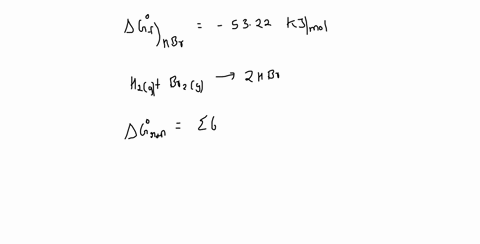 ΔG°f)HBr = - 53.22 KJ/mol
H2(g) + Br2(g) → 2HBr
ΔG°rxn = Σ6